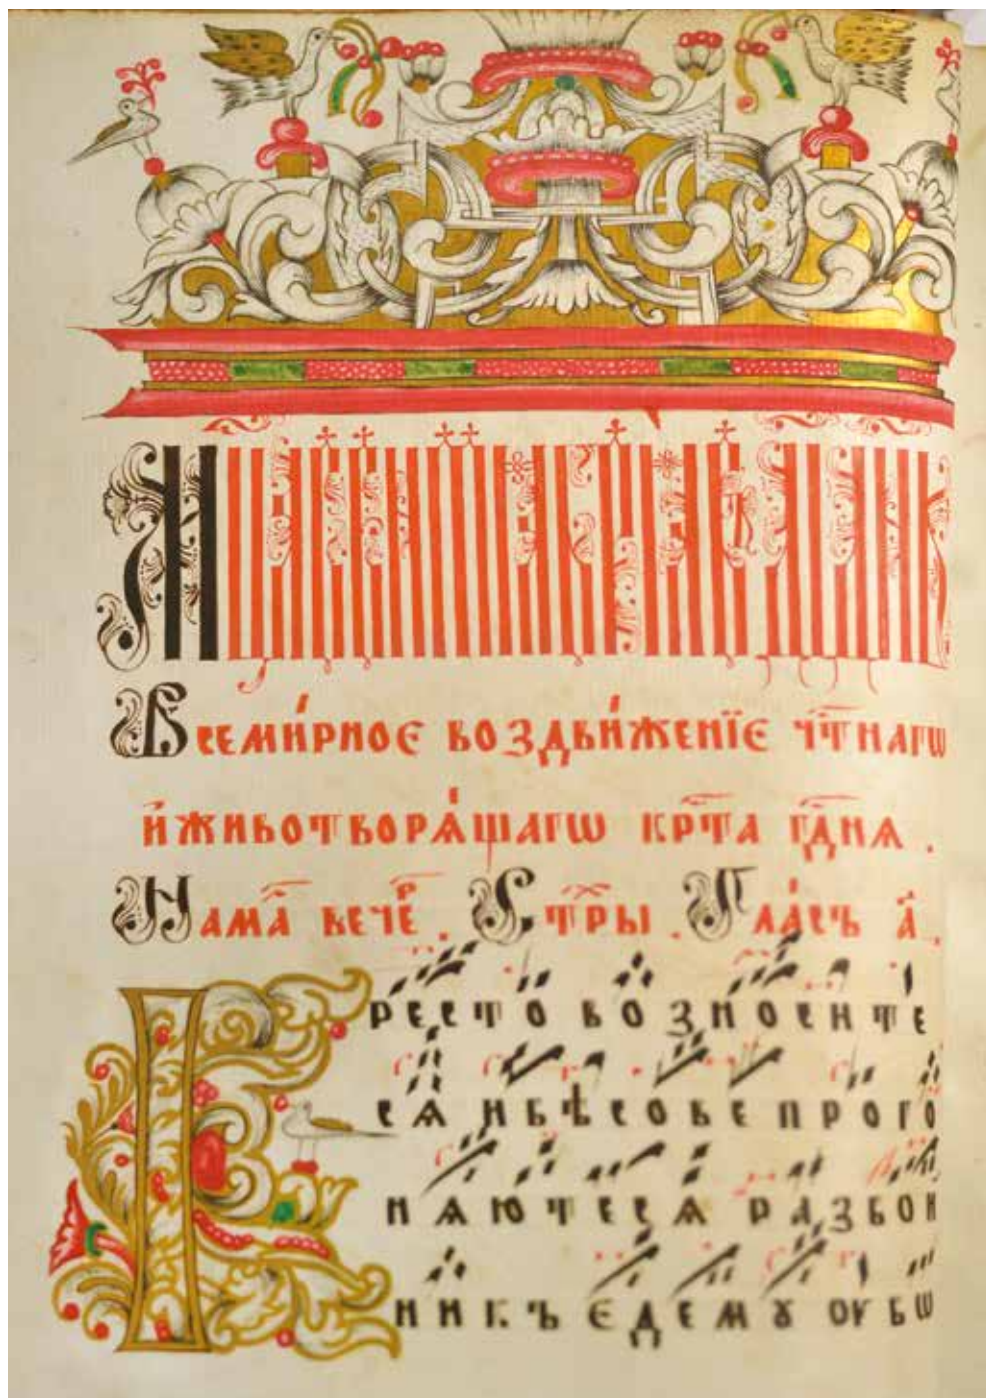 Всеми́рное воздви́женїе чт҃нагѡ
и҆ животворѧ́щагѡ крт҃а гдⷭ҇нѧ .
На маⷧ҇ вечеⷬ҇ . Стⷯры . Гла́съ а҃ .
Кресто возносите
сѧ и бѣсове прого
нѧютесѧ разбои
никъ єдемꙋ оубѡ